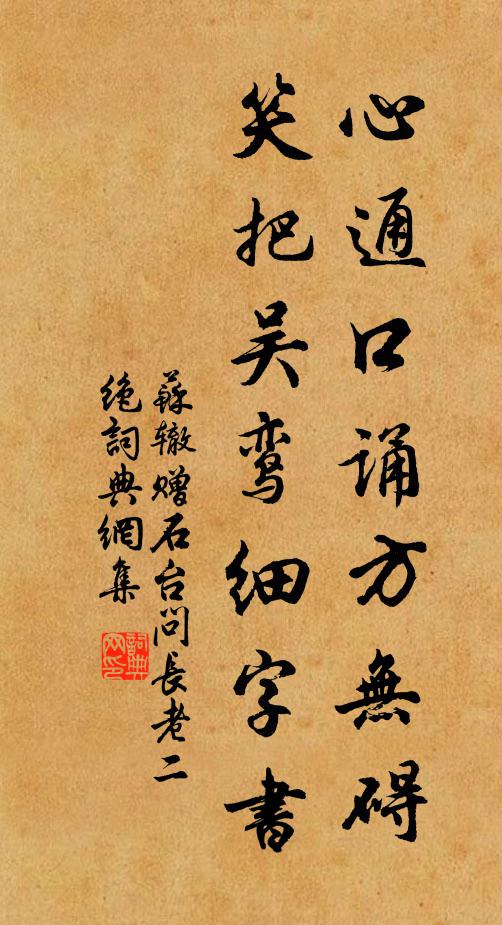 心通口诵方無碍
笑把吴鸾细字書
蘇辙赠石台問長老二
绝詞典網集
詞典网印